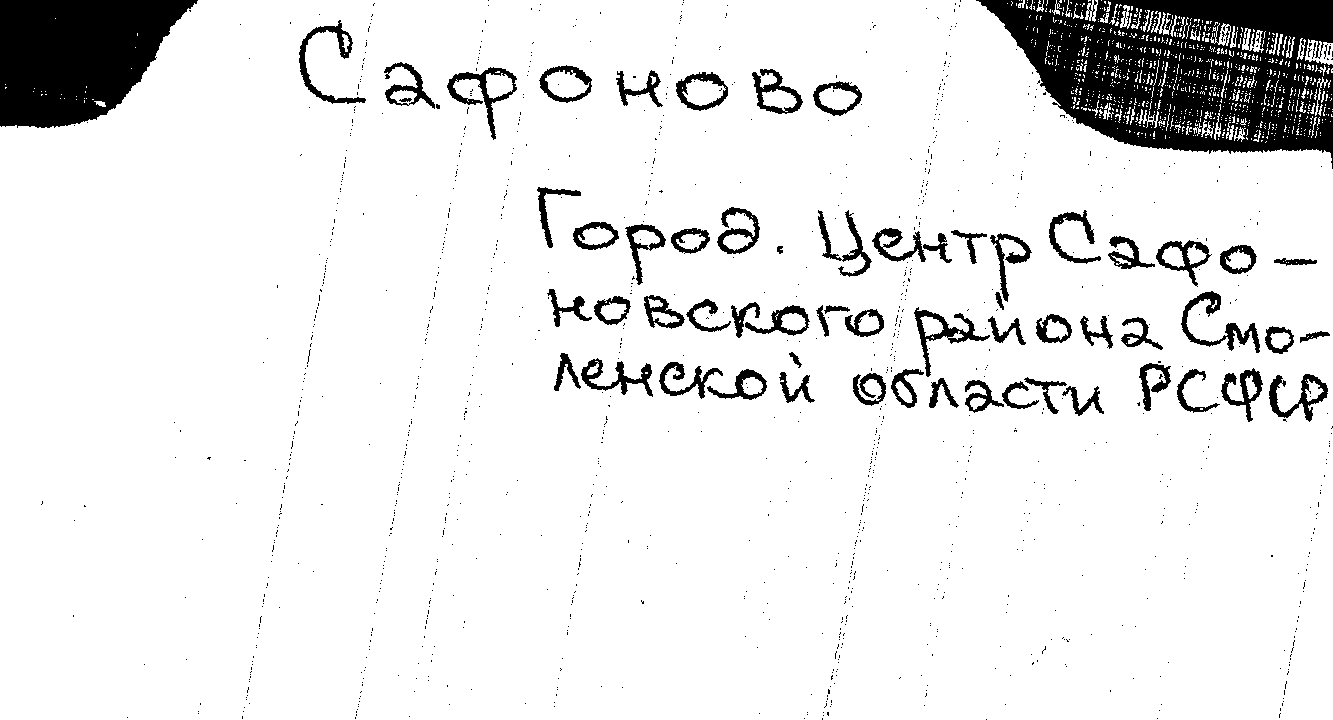 Сафоново
Город. Центр Сафо-
новского района Смо-
ленской области РСФСР